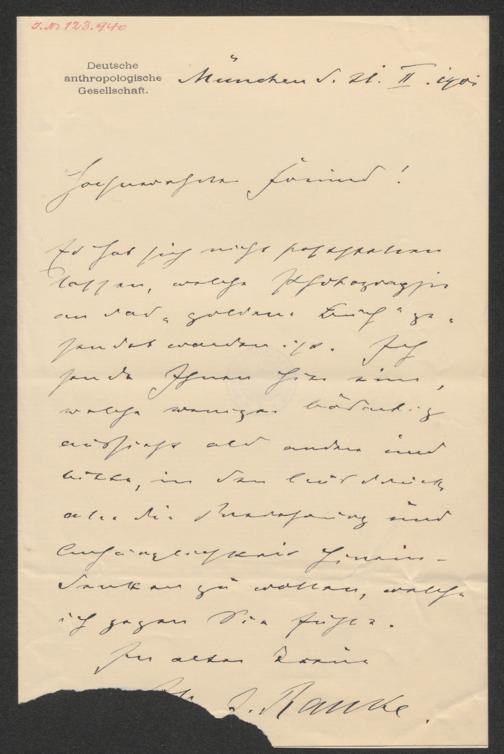 J.N. 123.940
Deutsche
anthropologische
Gesellschaft.
München d. 21. II. 1901
Hochverehrter Freund!
Es hat sich nicht feststellen
lassen, welche Photographie
an das „goldene Buch" ge-
sendet worden ist. Ich
sende Ihnen hier eine,
welche weniger
aussieht als andere und
bitte, in den Ausdruck
alle die Verehrung und
Anhänglichkeit hinein-
denken zu wollen, welche
ich gegen Sie fühle.
In alter Treue
J. Ranke.